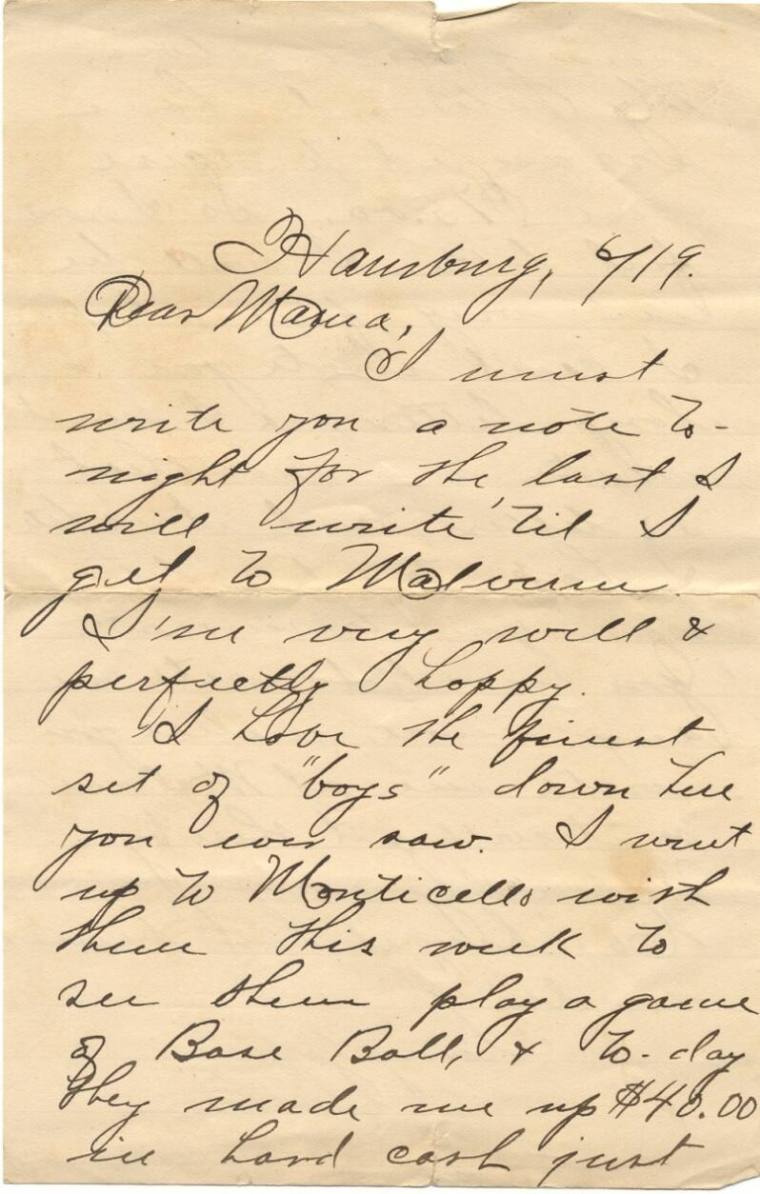 Hamburg, 6/19.
Dear Mama,
I must
write you a note to-
night for the last I
will write 'til I
get to Malvern.
I'm very well &
perfectly happy.
I have the finest
set of "boys" down here
you ever saw. I went
up to Monticello with
them this week to
see them play a game
of Base Ball, & to-day
they made me up $40.00
in hard cash just